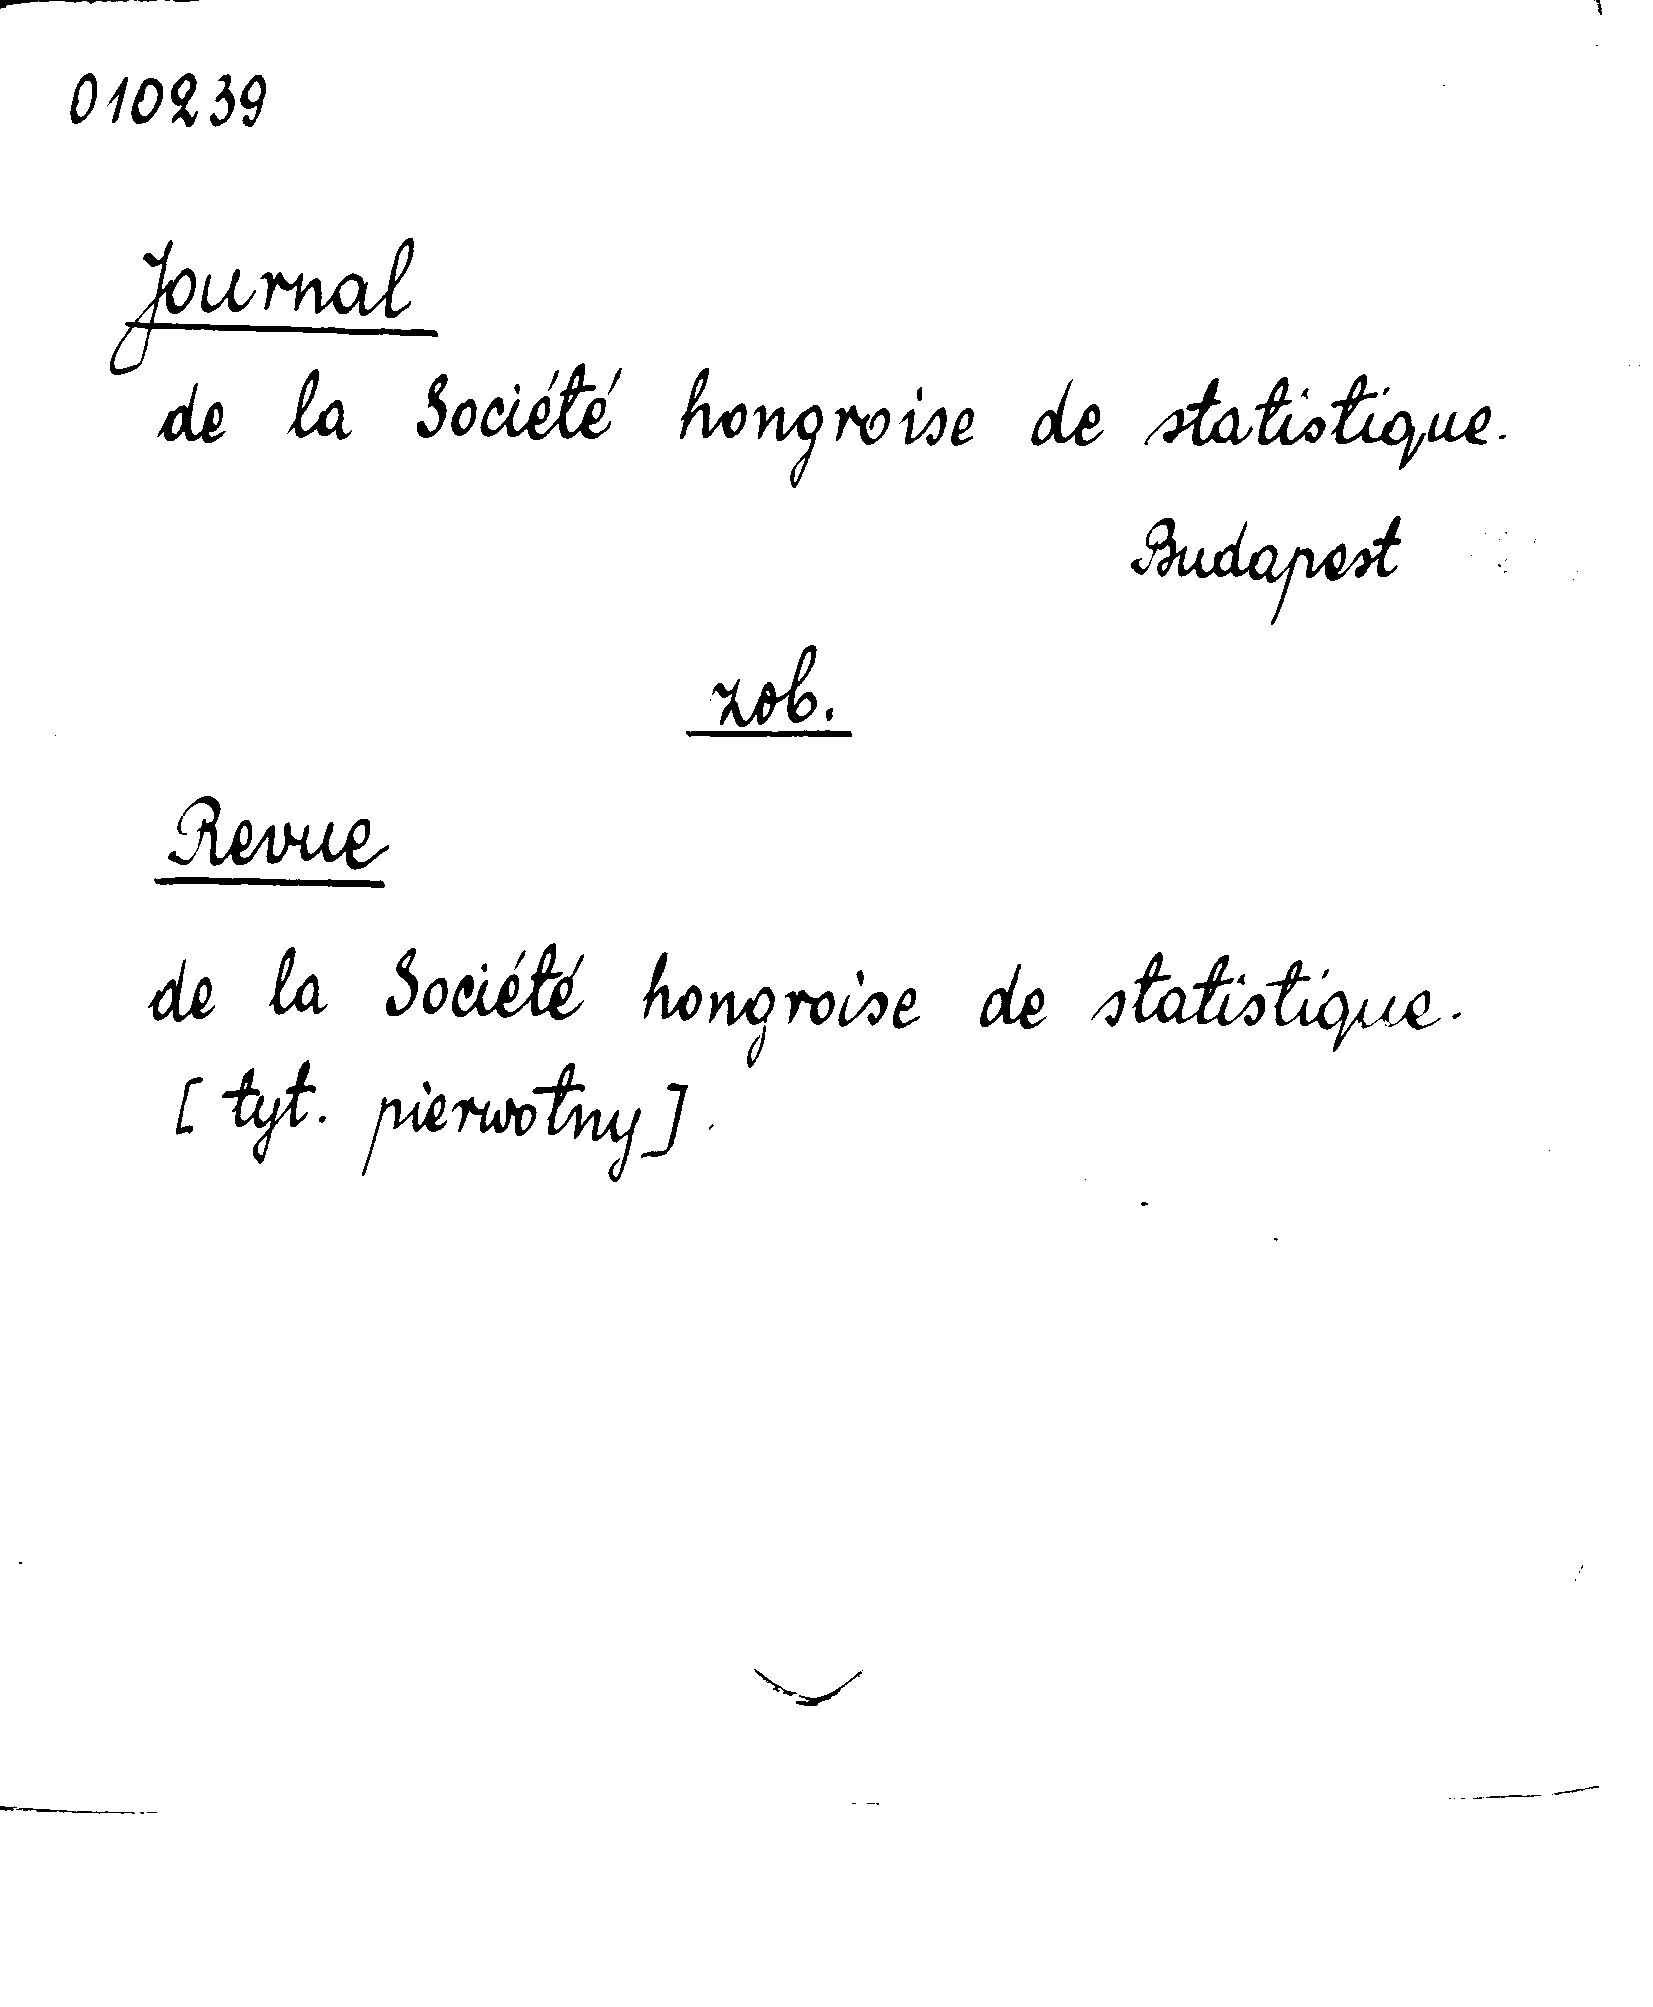 010239
Journal
de la Société hongroise de statistique.
Budapest
zob.
Revue
de la Société hongroise de statistique.
[tyt. pierwotny].